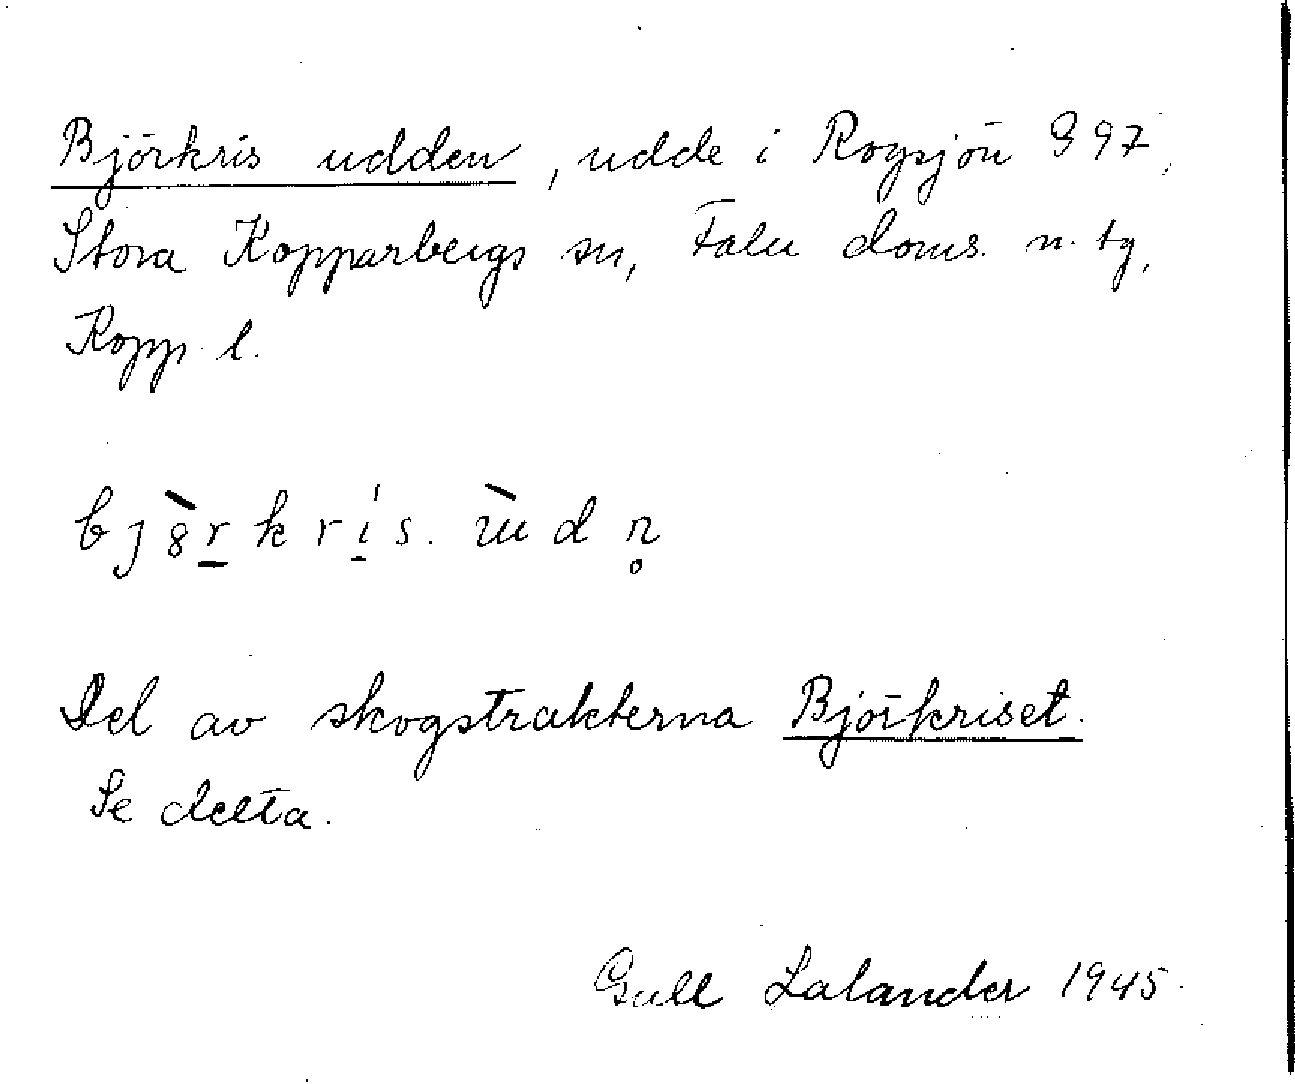 Björkris udden, udde i Rogsjön 997,
Stora Kopparbergs sn, Falu doms. n. tg,
Kopp. l.
bj8̀r̲kri̲s. ùdn̥
Del av skogstrakterna Björkriset.
Se detta.
Gull Lalander 1945.